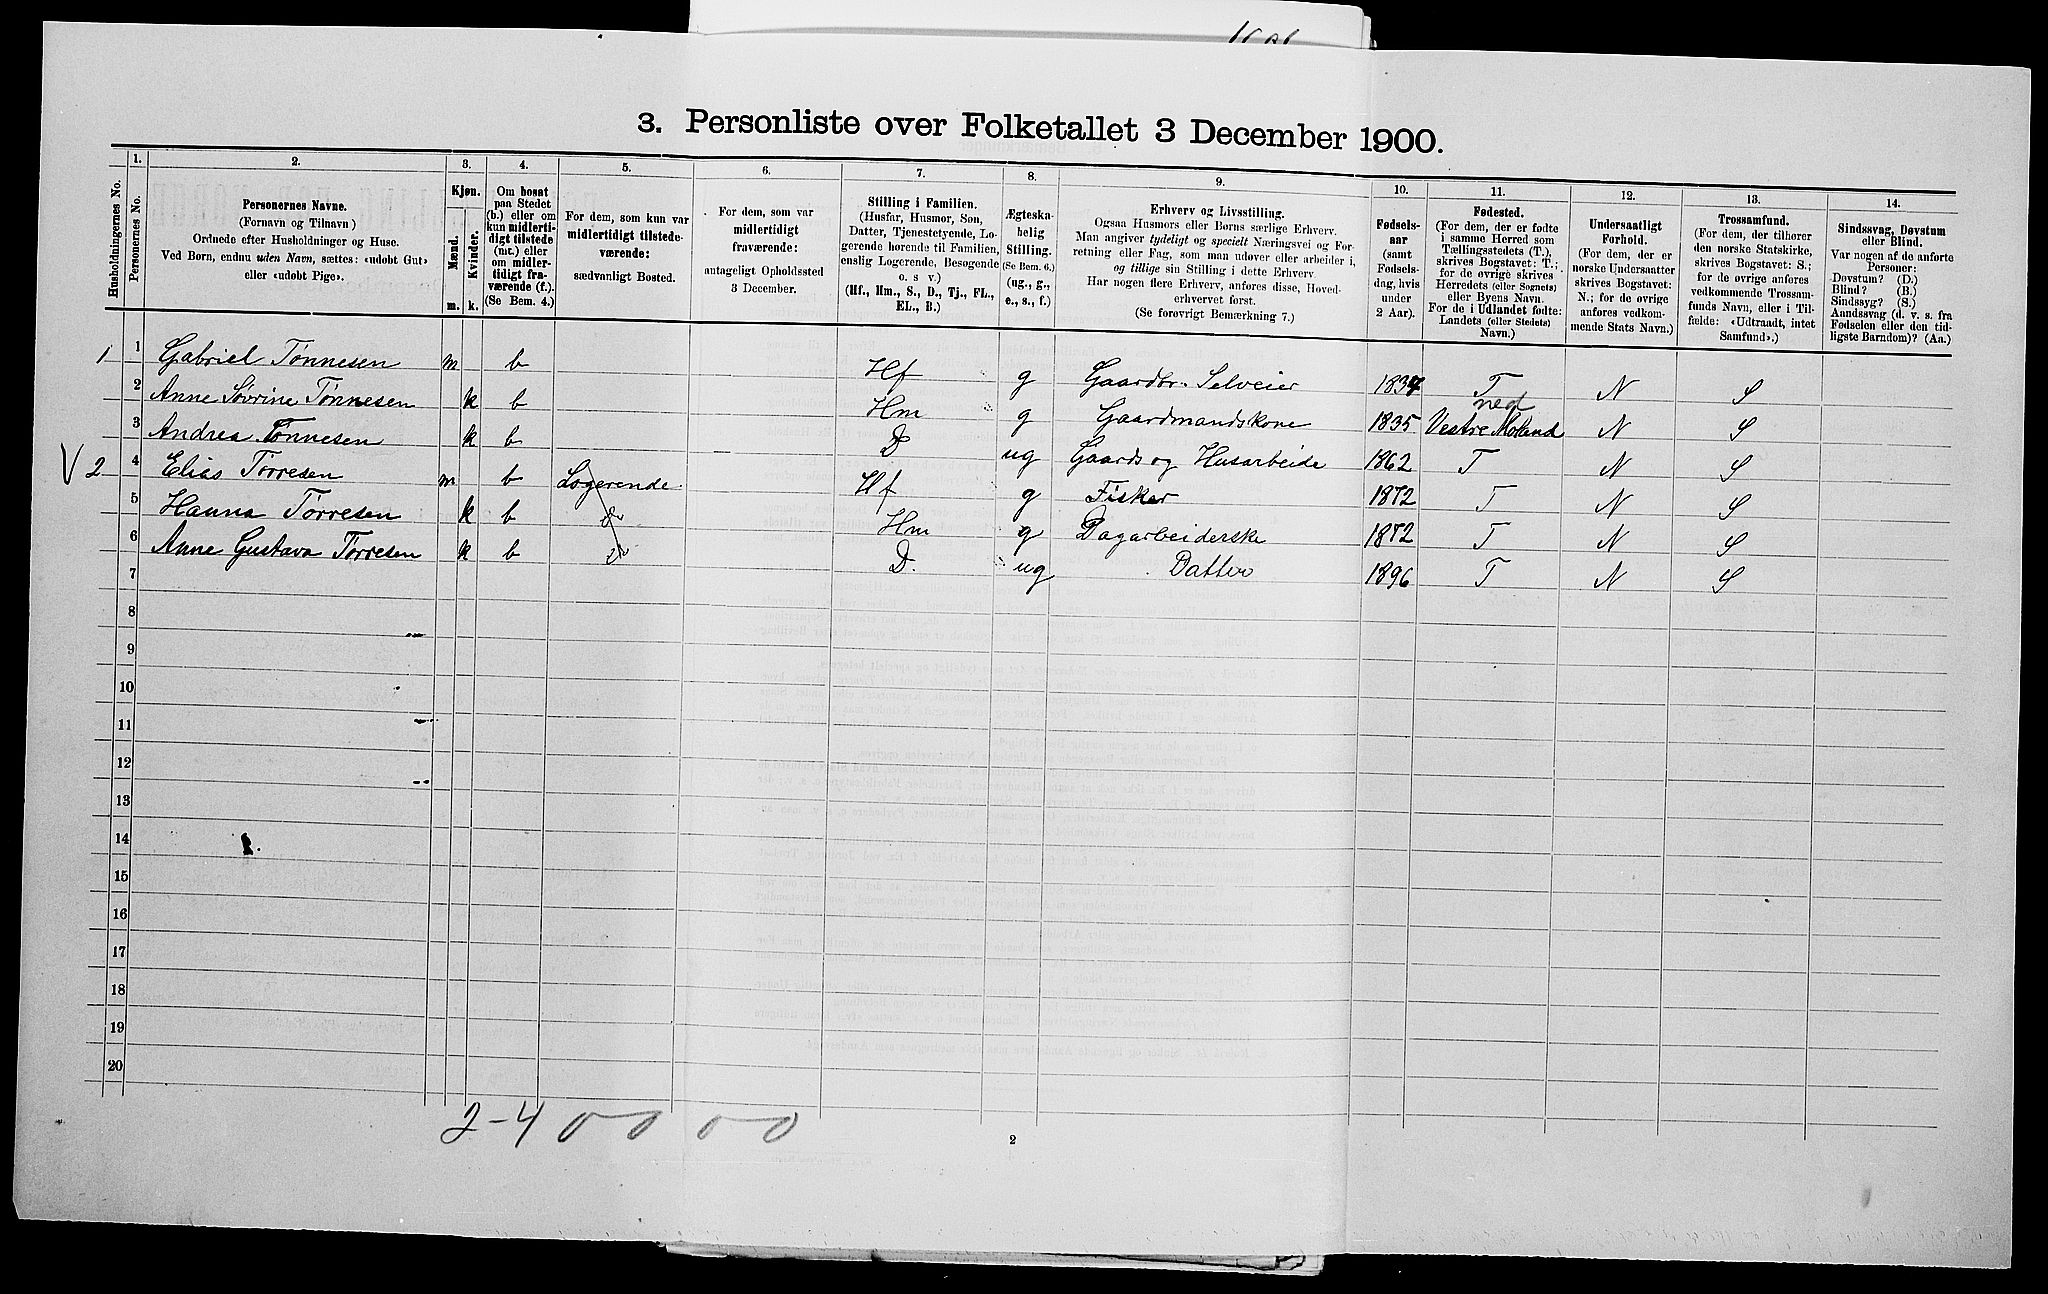 3. Personliste over Folketallet 3 December 1900.
Husholdningernes No.
1.
Personernes No.
2.
Personernes Navne.
(Fornavn og Tilnavn)
Ordnede efter Husholdninger og Huse.
Ved Børn, endnu uden Navn, sættes: «udøbt Gut»
eller «udøbt Pige».
3.
Kjøn.
Mænd.
Kvinder.
m.
k.
4.
Om bosat
paa Stedet
(b.) eller om
kun midlerti-
digt tilstede
(mt.) eller
om midler-
tidigt fra-
værende (f.).
(Se Bem. 4.)
5.
For dem, som kun var
midlertidigt tilstede-
værende:
sædvanligt Bosted.
6.
For dem, som var
midlertidigt
fraværende:
antageligt Opholdssted
3 December.
7.
Stilling i Familien.
(Husfar, Husmor, Søn,
Datter, Tjenestetyende, Lo-
gerende hørende til Familien,
enslig Logerende, Besøgende
o. s v.)
(Hf., Hm., S., D., Tj., FL.,
EL., B.)
8.
Ægteska-
belig
Stilling.
(Se Bem. 6.)
(ug., g.,
e., s., f.)
9.
Erhverv og Livsstilling.
Ogsaa Husmors eller Børns særlige Erhverv.
Man angiver tydeligt og specielt Næringsvei og For-
retning eller Fag, som man udøver eller arbeider i,
og tillige sin Stilling i dette Erhverv.
Har nogen flere Erhverv, anføres disse, Hoved-
erhvervet først.
(Se forøvrigt Bemærkning 7.)
10.
Fødsels-
aar
(samt
Fødsels-
dag, hvis
under
2 Aar).
11.
Fødested.
(For dem, der er fødte
i samme Herred som
Tællingsstedets (T.),
skrives Bogstavet: T.;
for de øvrige skrives
Herredets (eller Sognets)
eller Byens Navn.
For de i Udlandet fødte:
Landets (eller Stedets)
Navn.)
12.
Undersaatligt
Forhold.
(For dem, der er
norske Undersaatter
skrives Bogstavet:
N.; for de øvrige
anføres vedkom-
mende Stats Navn.)
13.
Trossamfund.
(For dem, der tilhører
den norske Statskirke,
skrives Bogstavet: S.;
for de øvrige anføres
vedkommende Trossam-
funds Navn, eller i Til-
fælde: «Udtraadt, intet
Samfund».)
14.
Sindssvag, Døvstum
eller Blind.
Var nogen af de anførte
Personer:
Døvstum? (D.)
Blind? (B.)
Sindssyg? (S.)
Aandssvag (d. v. s. fra
Fødselen eller den tid-
ligste Barndom)? (Aa.)
1 1 Gabriel Tønnesen m b Hf g Gaardbr. Selveier 1834 T N S
2 Anne Søvrine Tønnesen k b Hm g Gaardmandskone 1835 Vestre Moland ned N S
3 Andrea Tønnesen k b D ug Gaards og Husarbeide 1862 T N S
V 2 4 Elias Tørresen m b Logerende Hf g Fisker 1872 T N S
5 Hanna Tørresen k b Do Hm g Dagarbeiderske 1872 T N S
6 Anne Gustava Tørresen k b Do D. ug Datter 1896 T N S
7
8
9
10
11
12
13
14
15
16
17
18
19
20
2-4 0 0 0 0
2